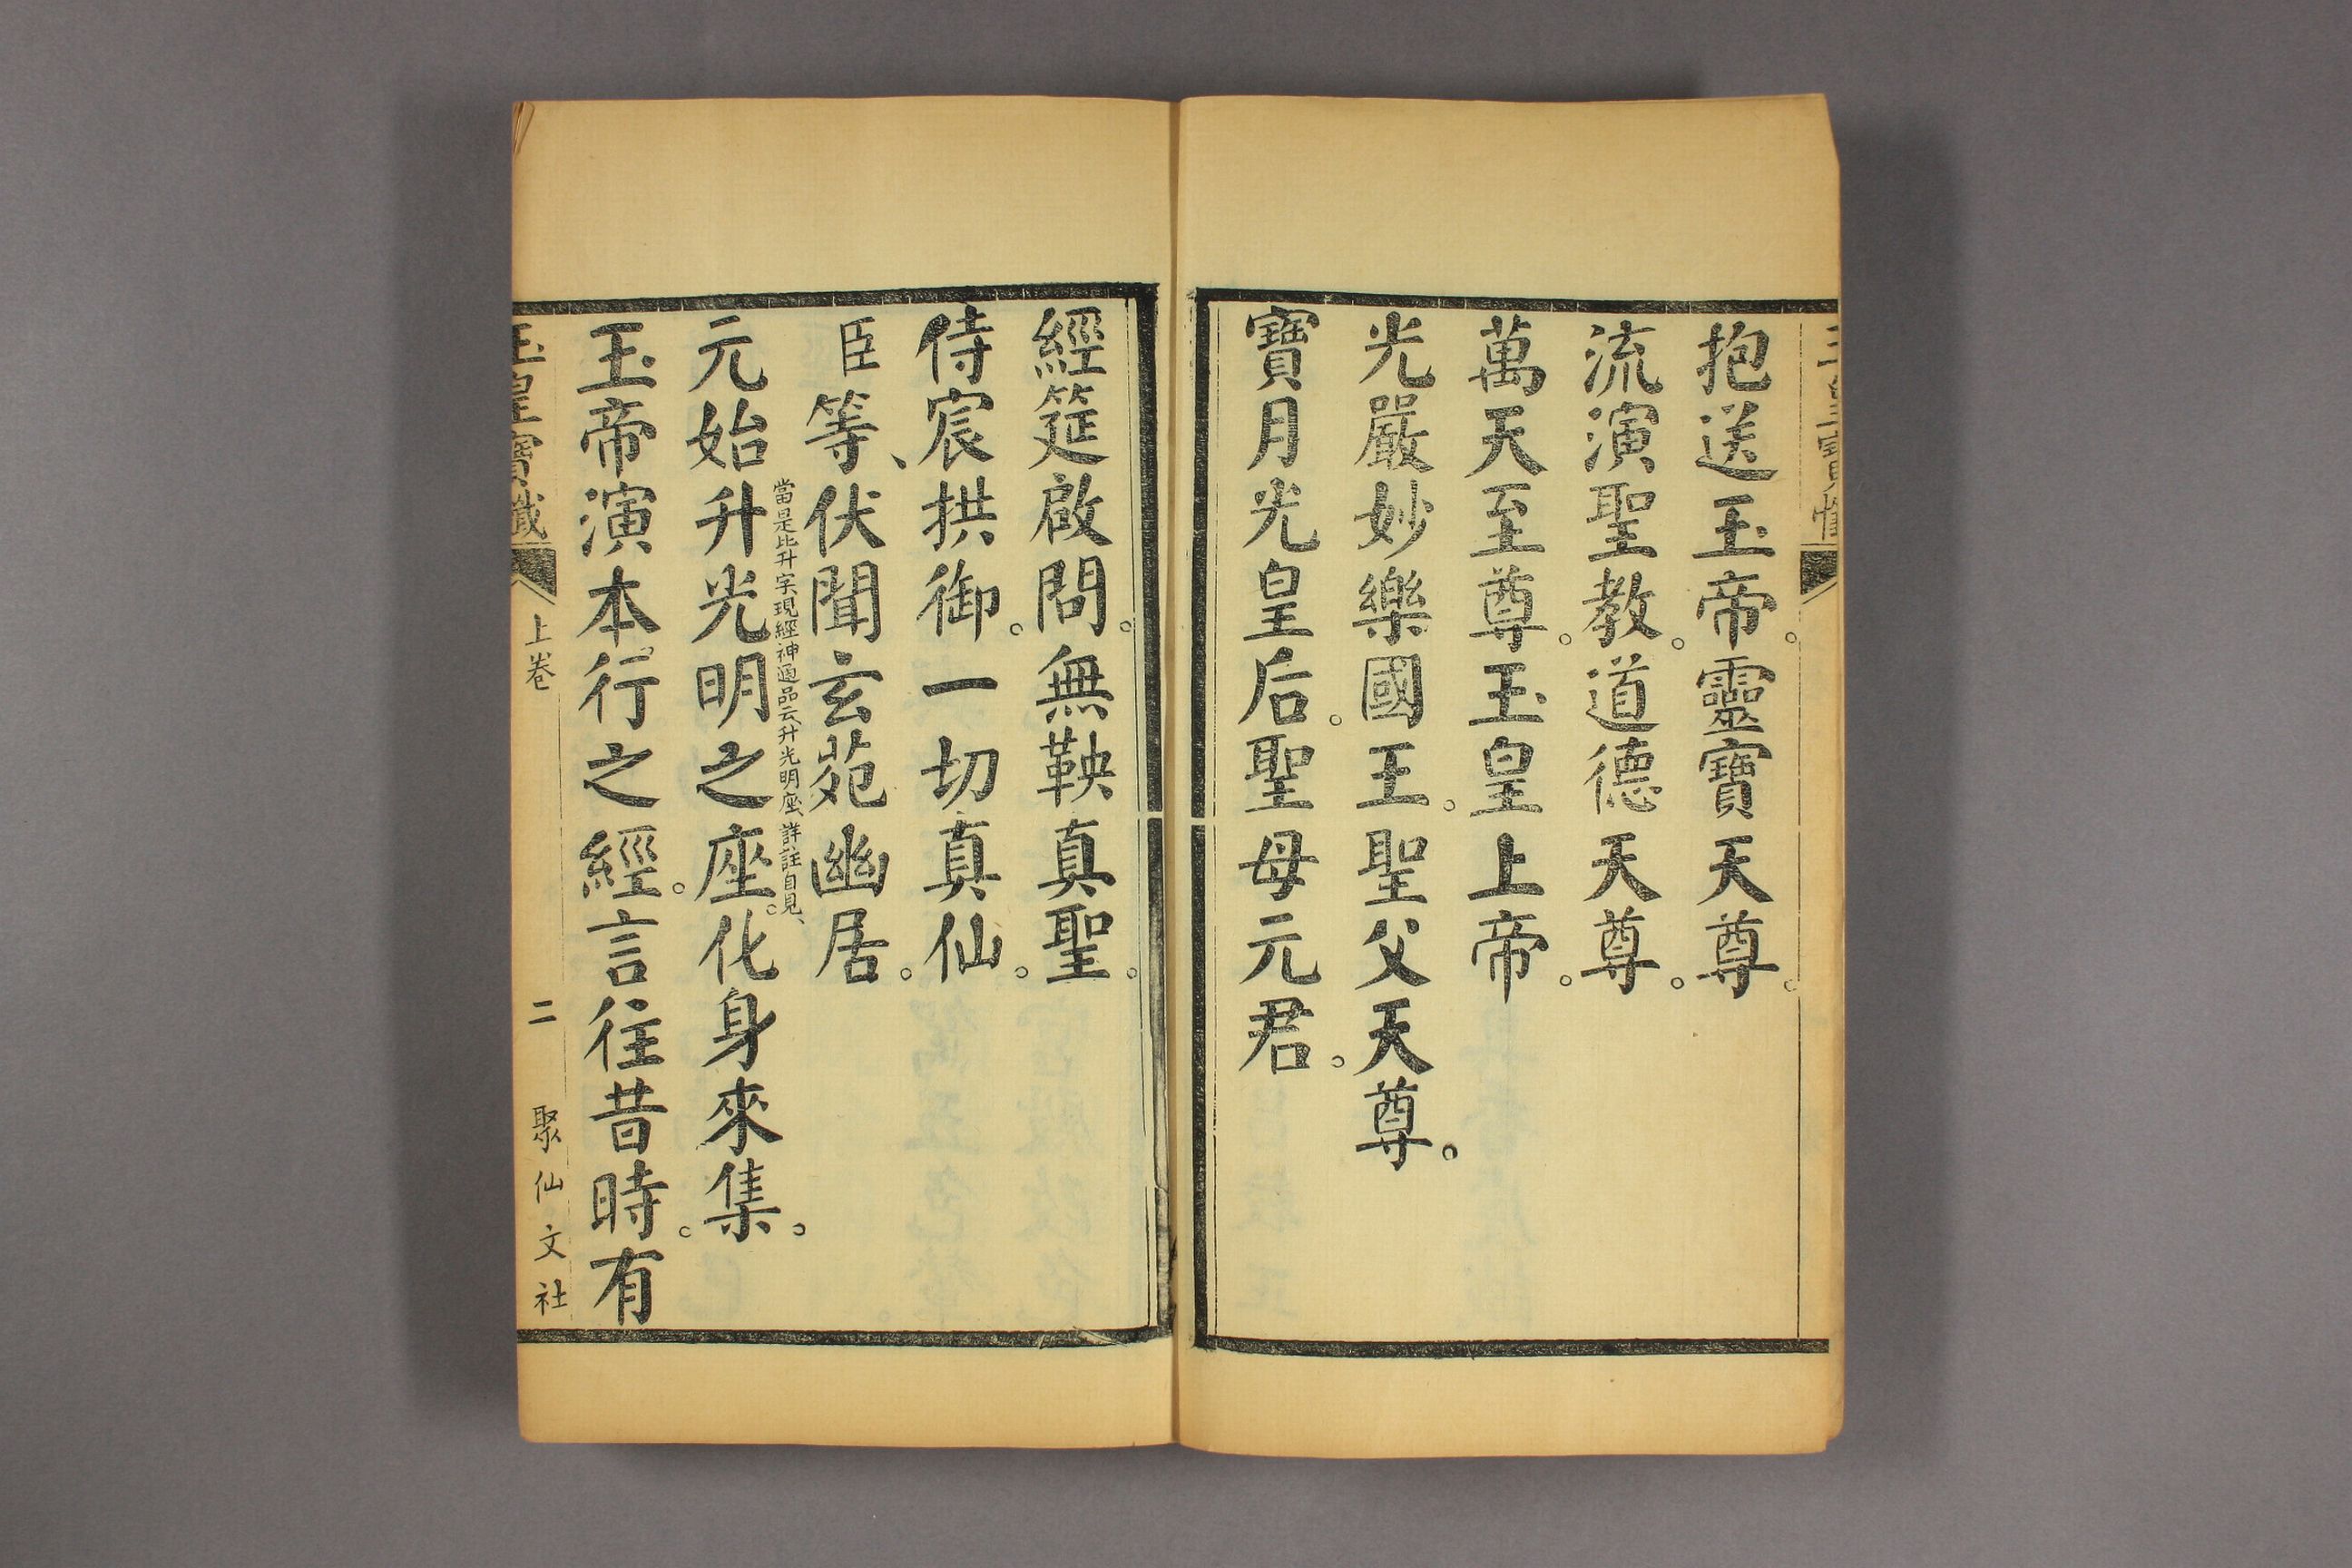 抱送玉帝。靈寶天尊。
流演聖教。道德天尊。
萬天至尊。玉皇上帝。
光嚴妙樂國王。聖父天尊。
寶月光皇后。聖母元君。
經筵啟問。無鞅真聖。
侍宸拱御。一切真仙。
臣等、伏聞玄苑幽居。
當是此升字現經神通品云升光明座、詳註自見、
元始升光明之座。化身來集。
玉帝演本行之經。言往昔時。有
玉皇寶懺
上卷
二
聚仙文社